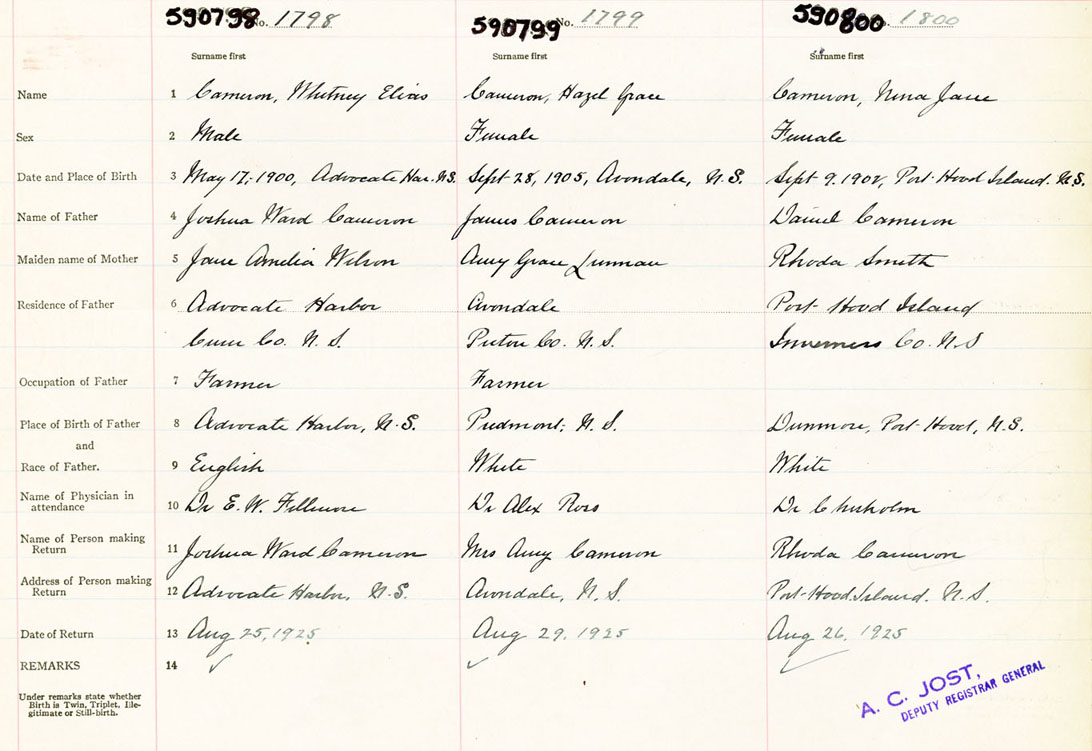 590798 No. 1798 590799 No. 1799 590800 1800
Surname first Surname first Surname first
Name 1 Cameron, Whitney Elias Cameron, Hazel Grace Cameron, Nena Jane
Sex 2 Male Female Female
Date and Place of Birth 3 May 17, 1900, Advocate Har. N.S. Sept 28, 1905, Avondale, N.S. Sept 9. 1902, Port Hood Island. N.S.
Name of Father 4 Joshua Ward Cameron James Cameron Daniel Cameron
Maiden name of Mother 5 Jane Amelia Wilson Amy Grace Rhoda Smith
Residence of Father 6 Advocate Harbor Avondale Port Hood Island
Cum Co. N.S. Pictou Co. N.S. Inverness Co. N.S
Occupation of Father 7 Farmer Farmer
Place of Birth of Father 8 Advocate Harbor, N.S. Piedmont, N.S. Dunmore, Port Hood, N.S.
and
Race of Father. 9 English White White
Name of Physician in
attendance 10 Dr E. W. Fillmore Dr Alex Ross Dr Chisholm
Name of Person making
Return 11 Joshua Ward Cameron Mrs Amy Cameron Rhoda Cameron
Address of Person making
Return 12 Advocate Harbor, N.S. Avondale, N.S. Port Hood Island. N.S.
Date of Return 13 Aug 25, 1925 Aug 29, 1925 Aug 26, 1925
REMARKS 14
Under remarks state whether
Birth is Twin, Triplet, Ille-
gitimate or Still-birth.
A. C. JOST,
DEPUTY REGISTRAR GENERAL